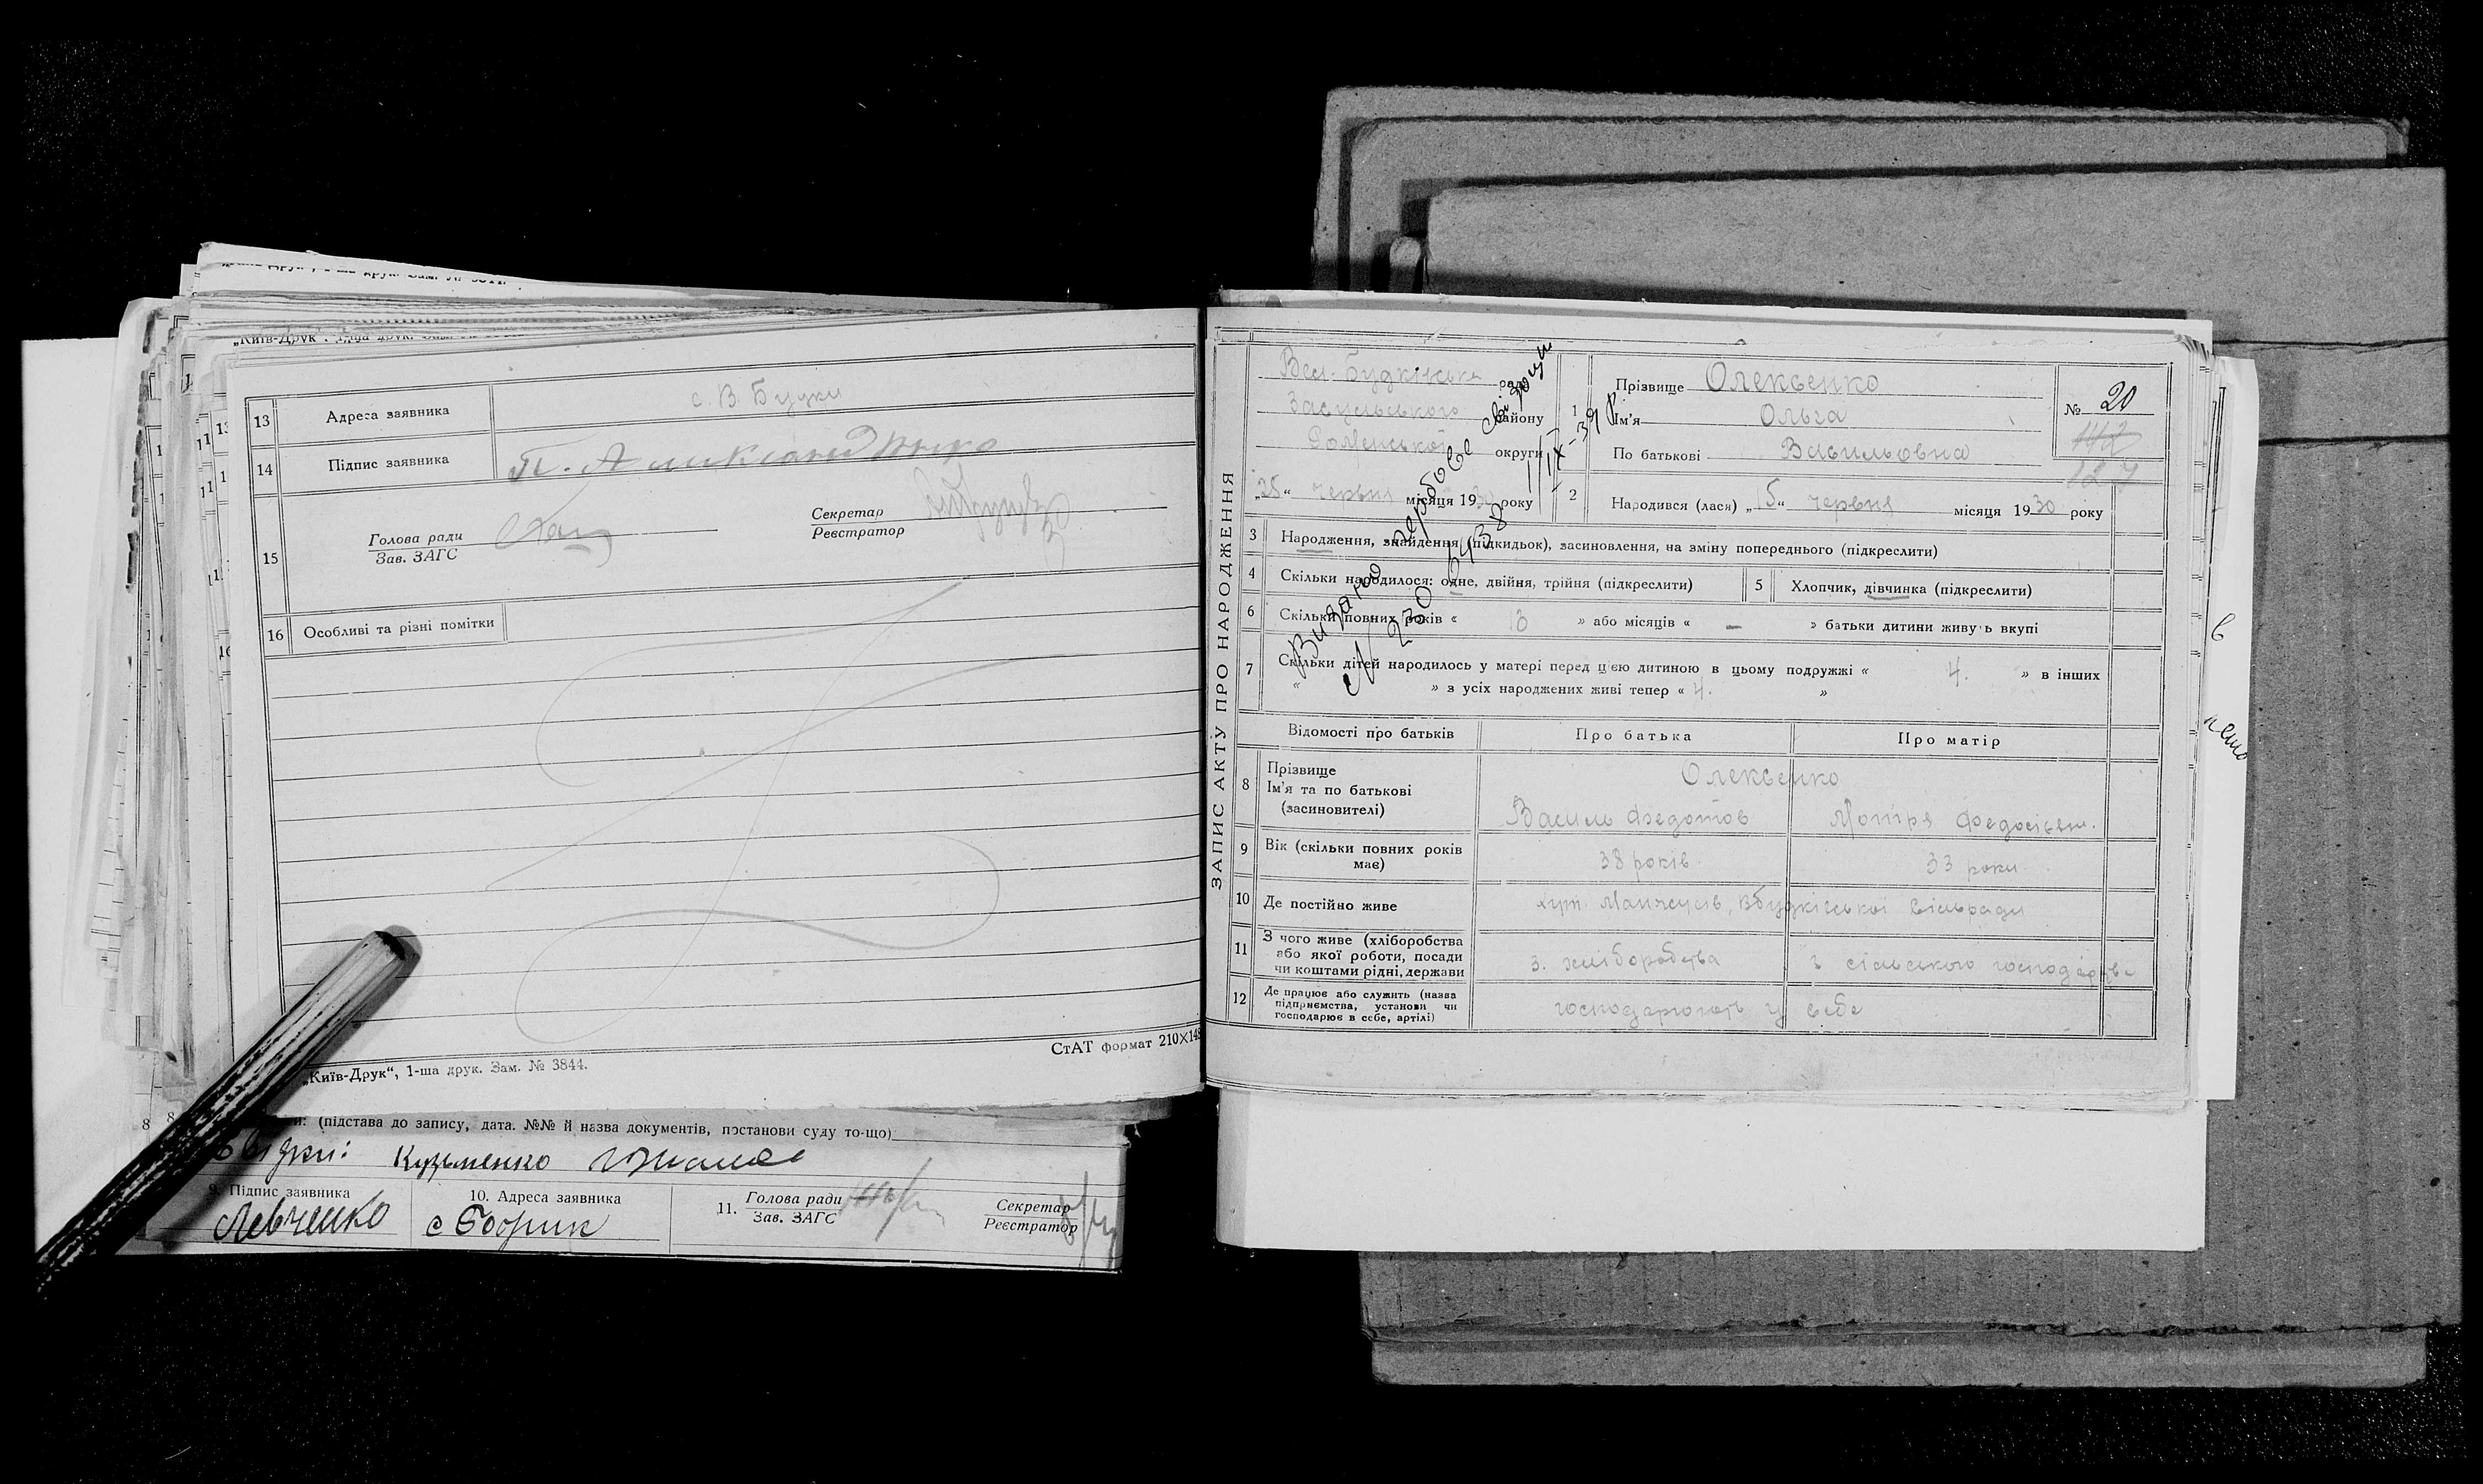 „Київ-Друк“, 1-ша друк.
13 Адреса заявника с. В Будки
14 Підпис заявника
15 Голова ради
Зав. ЗАГС
Секретар
Реєстратор
16 Особливі та різні помітки
СтАТ формат 210×148
„Київ-Друк“, 1-ша друк. Зам. № 3844.
(підстава до запису, дата. №№ й назва документів, постанови суду то-що)
Кузьменко
9. Підпис заявника
Левченко
10. Адреса заявника
с Бобрик
11. Голова ради
Зав. ЗАГС
Секретар
Реєстратор
ЗАПИС АКТУ ПРО НАРОДЖЕННЯ
Вел. Будківська ради
Засульського району
Роменської округи
„25“ червня місяця 1930 року
Видано гербове
N 230
1/IX-39 р
1 Прізвище Олексенко
Ім'я Ольга
По батькові Васильовна
№ 20
127
2 Народився (лася) „15“ червня місяця 1930 року
3 Народження, знайдення (підкидьок), засиновлення, на зміну попереднього (підкреслити)
4 Скільки народилося: одне, двійня, трійня (підкреслити)
5 Хлопчик, дівчинка (підкреслити)
6 Скільки повних років « 13 » або місяців « — » батьки дитини живуть вкупі
7 Скільки дітей народилось у матері перед цією дитиною в цьому подружжі « 4. » в інших
« » з усіх народжених живі тепер « 4. »
Відомості про батьків Про батька Про матір
8 Прізвище
Ім'я та по батькові
(засиновителі)
Олексенко
Василь Федотов
Мотря
9 Вік (скільки повних років має) 38 років 33 роки
10 Де постійно живе хут. Вбудківської сільради
11 З чого живе (хліборобства або якої роботи, посади чи коштами рідні, держави
з. хліборобства
з сільського господарства
12 Де працює або служить (назва підприємства, установи чи господарює в себе, артілі)
господарюють у себе